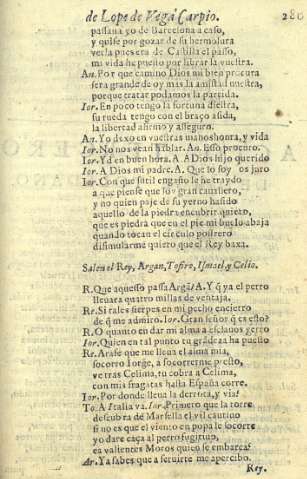 de Lope de Vega Carpio. 280
passaua yo de Barcelona a caso,
y quise por gozar de su hermosura
verla puesta de Castilla el passo,
mi vida he puesto por librar la vuestra.
An. Por que camino Dios mi bien procura
sera grande de oy mas la amistad nuestra,
porque tratar podamos la partida.
Ior. En poco tengo la fortuna diestra,
su rueda tengo con el braço asida,
la libertad afirmo y asseguro.
An. Yo dexo en vuestras manos honra, y vida
Ior. No nos vean hablar. An. Esso procuro.
Ior. Yd en buen hora. A. A Dios hijo querido
Ior. A Dios mi padre. A. Que lo soy os juro
Ior. Con que sutil engaño le he traydo
a que piense que soy gran cauallero,
y no quien paje de su yerno ha sido
aquello de la piedra encubrir quiero,
que es piedra que en el pie mi buelo abaja
quando tocan el circulo postrero
dissimularme quiero que el Rey baxa.
Salen el Rey, Argan, Tosiro, Ismael, y Celio.
R. Que aquesso passa Argã? A. Y q̃ ya el perro
lleuara quatro millas de ventaja.
Re. Si tales sierpes en mi pecho encierro
de q̃ me admiro. Ior. Gran señor q̃ es esto?
R. O quanto en dar mi alma a esclauos yerro
Ior. Quien en tal punto tu grãdeza ha puesto
Re. Arafe que me lleua el alma mia,
socorro Iorge, a socorrerme presto,
ve tras Celima, tu cobra a Celima,
con mis fragatas hasta España corre.
Ior. Por donde lleua la derrota, y via?
To. A Italia va. Ior. Primero que la torre
descubra de Marsella el vil cautiuo
si no es que el viento en popa le socorre
yo dare caça al perro fugitiuo,
ea valientes Moros quien se embarca?
Ar. Ya sabes que a seruirte me apercibo.
Rey.